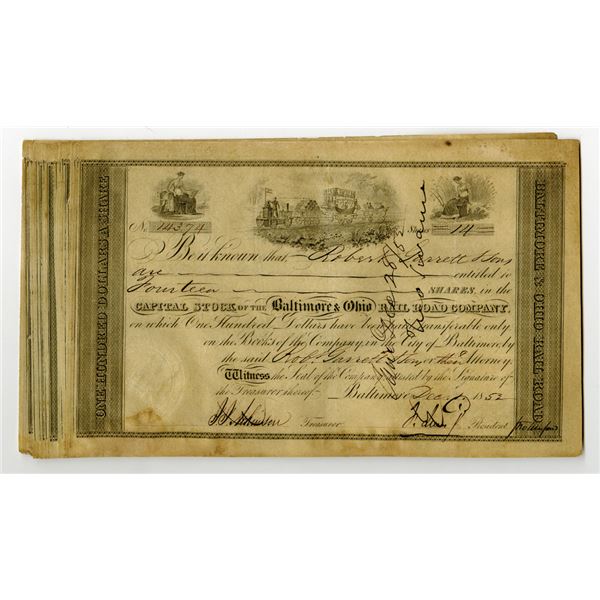 ONE HUNDRED DOLLARS A SHARE
No. 14374
Shares 14
Be it known that Robert Garrett & Sons
are entitled to
Fourteen SHARES, in the
CAPITAL STOCK OF THE Baltimore & Ohio RAIL ROAD COMPANY,
on which One Hundred Dollars have been paid transferable only
on the Books of the Company, in the City of Baltimore, by
the said Robt. Garrett & Sons or their Attorney.
Witness, the Seal of the Company, attested by the Signature of
the Treasurer thereof Baltimore Dec 1852
Treasurer
President
BALTIMORE & OHIO RAIL ROAD